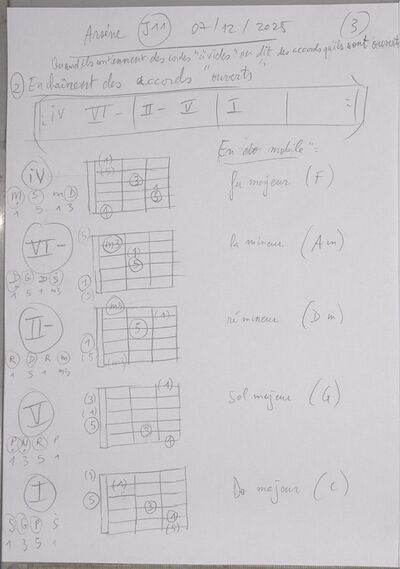 Arsène J11 07/12/2025 3
Quand ils contiennent des cordes "à vides" on dit des accords qu'ils sont ouverts
2 Enchaînement des accords "ouverts"
IV VI- | II- V | I
En "do mobile" =
IV
(1)
(5)
3
5
1
fa majeur (F)
M S m D
1 5 1 3
VI-
(5)
m3
(1)
5
1
(5)
la mineur (Am)
D G D S
1 5 1 m3
II-
m3
(1)
5
1
(5)
(m3)
ré mineur (Dm)
R D R m
1 5 1 m3
V
(1)
(3)
(1)
5
3
1
Sol majeur (G)
P N R P
1 3 5 1
I
(3)
(1)
5
3
1
(5)
Do majeur (C)
S G P S
1 3 5 1